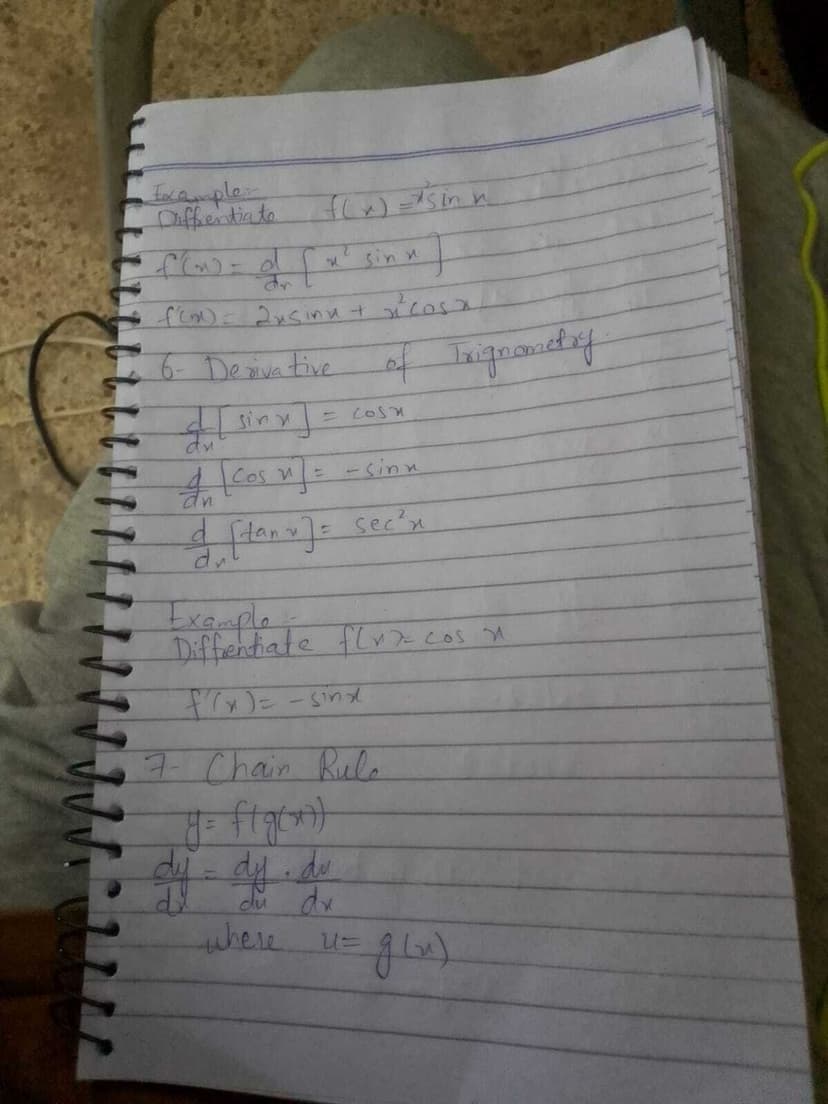 Example:-
Diffrentiate f(x) = x²sin x
f'(x) = d/dx [x² sin x]
f'(x) = 2x sin x + x² cos x
6- Derivative of Trignometry.
d/dx [sin x] = cos x
d/dx [cos x] = -sin x
d/dx [tan x] = sec²x
Example:-
Diffrentiate f(x) = cos x
f'(x) = -sin x
7- Chain Rule
y = f(g(x))
dy/dx = dy/du . du/dx
where u = g(x)